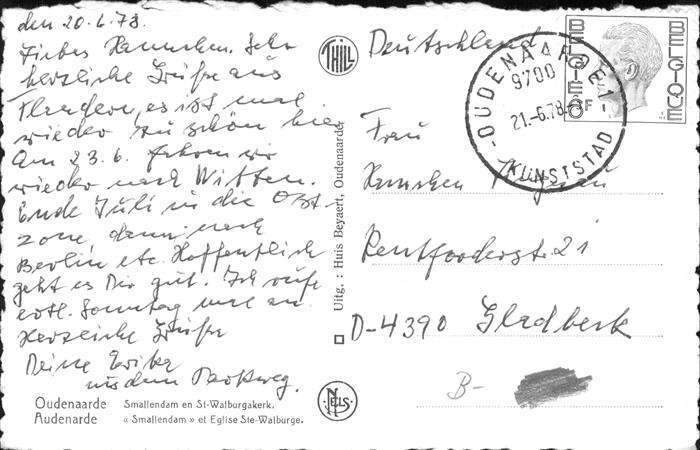 den 20.6.78.
Liebes Hannchen. Sehr
herzliche Grüße aus
Flandern, es ist mal
wieder zu schön hier
Am 23.6. fahren wir
wieder nach Witten.
Ende Juli in die Ost-
zone, dann nach
Berlin etc. Hoffentlich
geht es Dir gut. Ich rufe
evtl. Sonntag mal an.
Herzliche Grüße
Deine
aus dem
Oudenaarde Smallendam en St-Walburgakerk.
Audenarde « Smallendam » et Eglise Ste-Walburge.
THILL
Uitg. : Huis Beyaert, Oudenaarde
NELS
BELGIE BELGIQUE
6F
OUDENAARDE 1
9700
21.-6.78-
KUNSTSTAD
Deutschland
Frau
Hannchen
Rentforderstr. 21
D-4390 Gladbeck
B-